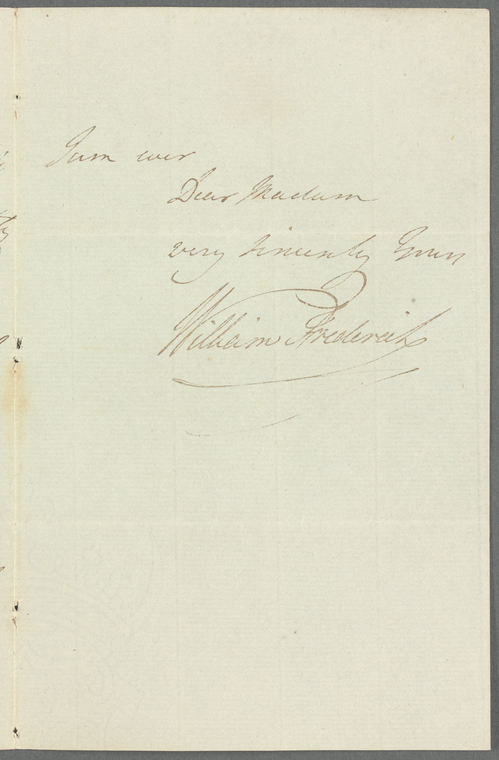 I am ever
Dear Madam
very sincerely Yours
William Frederick